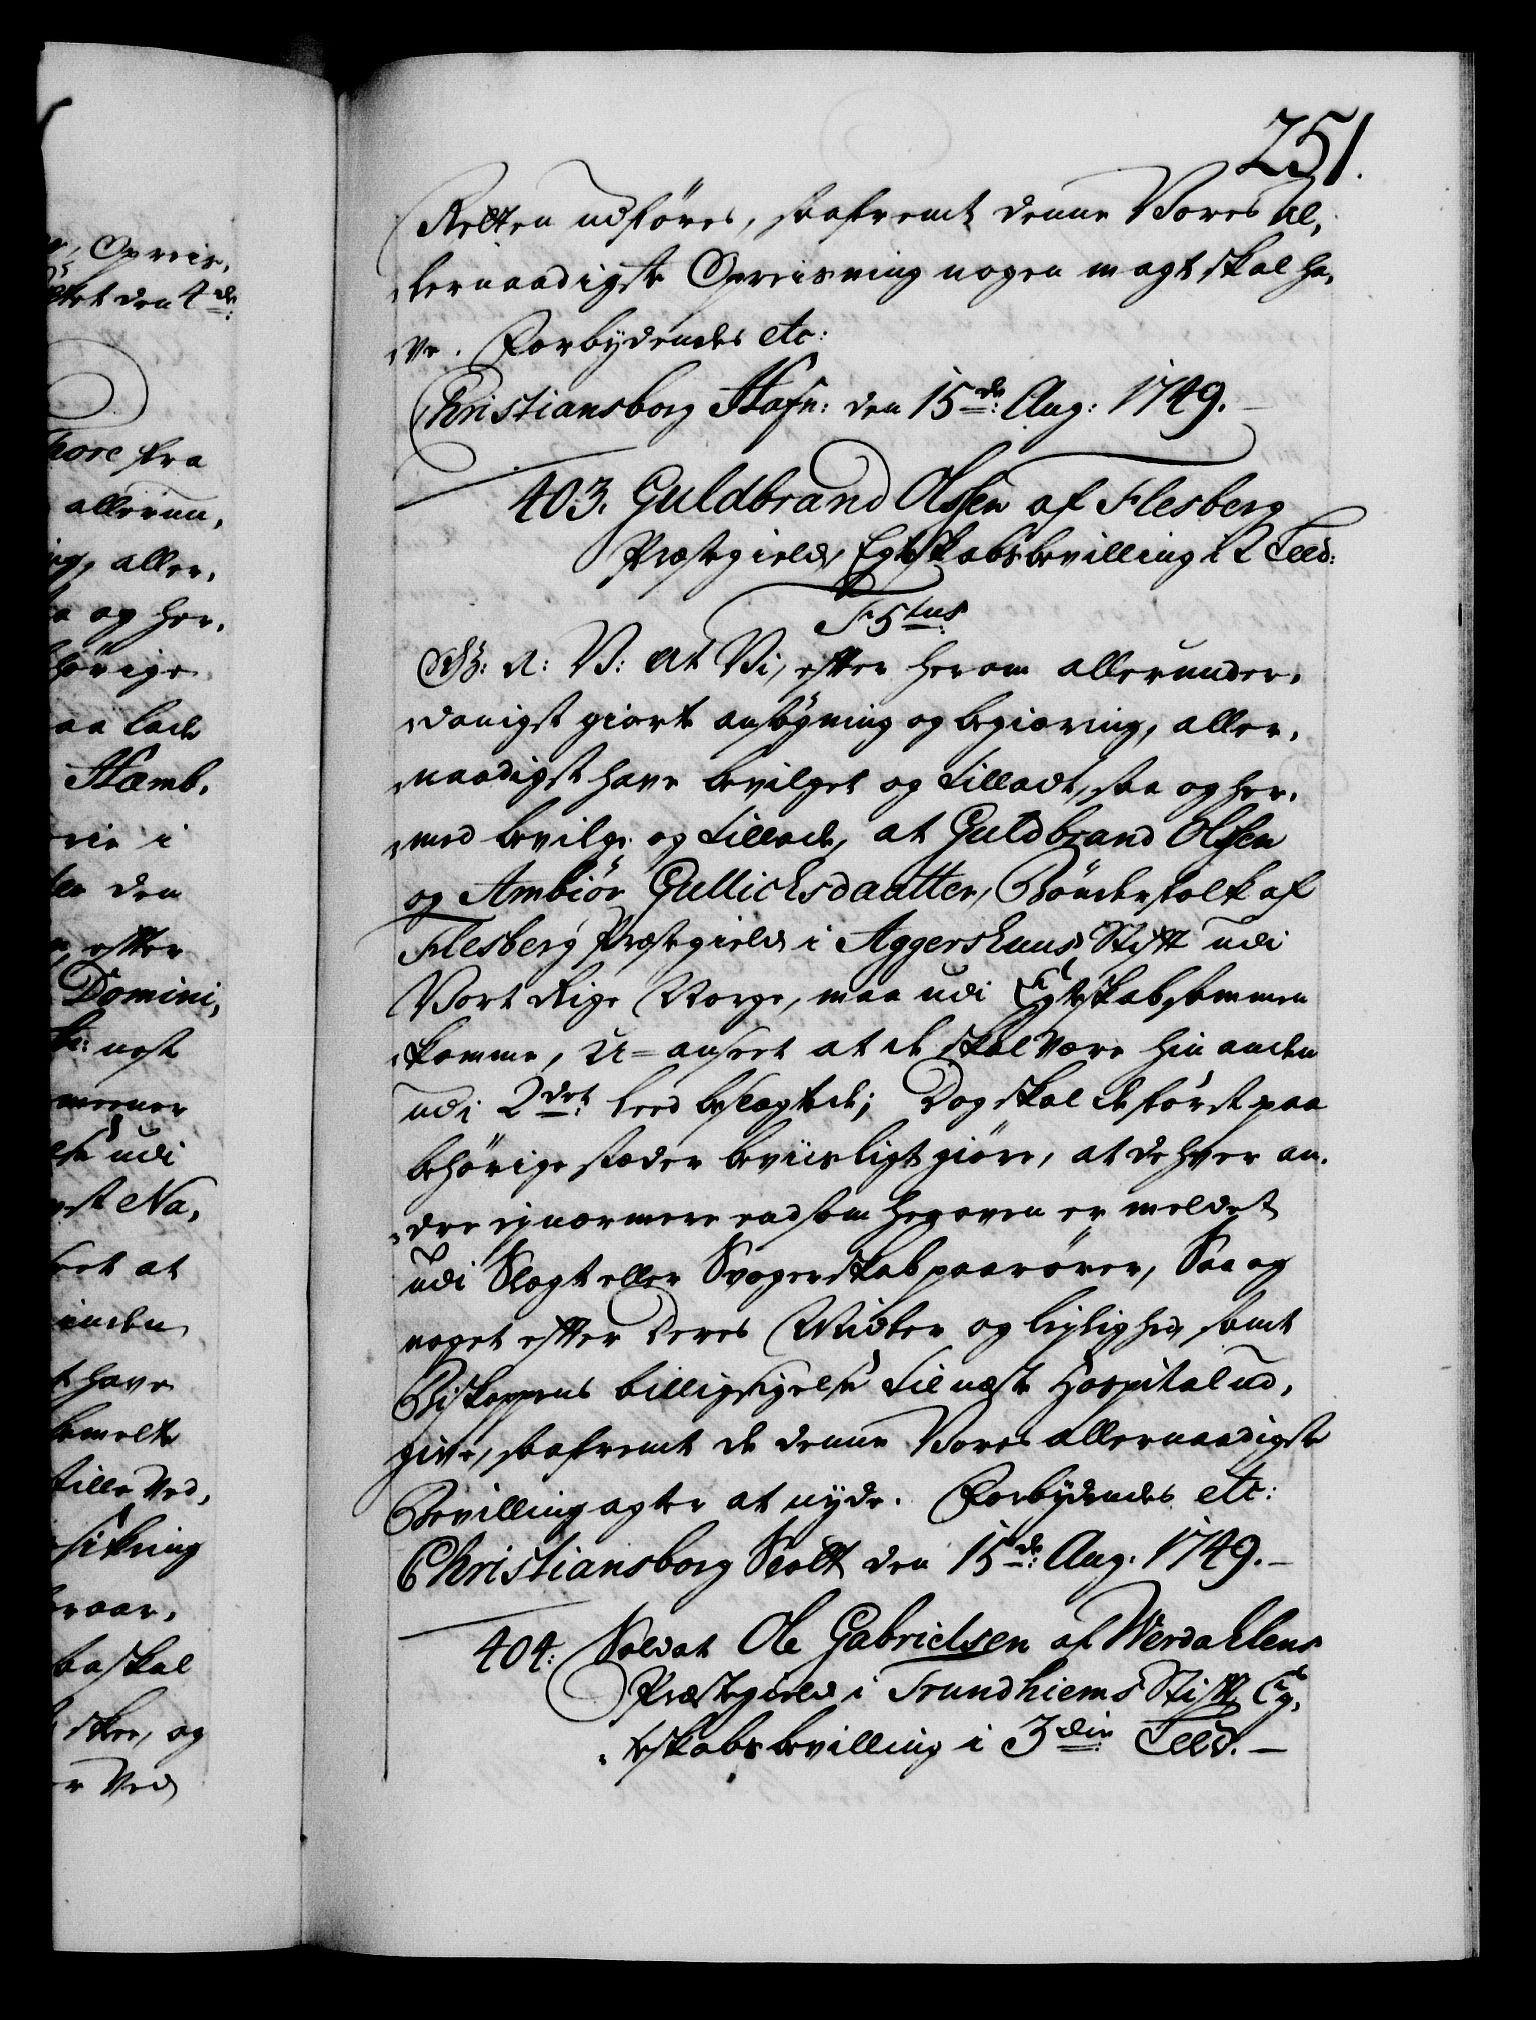 251.
Retten udføres, saafremt denne Vores Al,
lernaadigste Opreisning nogen magt skal ha,
ve. Forbydendes etc:
Christiansborg Hafn: den 15de: Aug: 1749.
403. Guldbrand Olssen af Flesberg
Præstegield, Egteskabsbevilling i 2 Leed:
F5tus
G: A: V: At Vi, efter herom allerunder,
danigst giort ansøgning og begiæring, aller,
naadigst have bevilget og tilladt, saa og her,
med bevilge og tillade, at Guldbrand Olssen
og Ambiør Gullichsdaatter, Bønderfolk af
Flesberg Præstegield i Aggershuus Stift udi
Vort Rige Norge, maa udi Egteskab sammen
komme, U-anseet at de skal være hinanden
udi 2det Leed beslægtede; Dog skal de først paa
behørige stæder beviisligt giøre, at de hver an,
dre ey nærmere end som hersoven er meldet
udi Slægt eller Svogerskab paarører, Saa og
noget efter Deres Midler og leylighed, samt
Biskoppens billigsigelse til næste Hospital ud,
give, saafremt de denne Vores allernaadigste
Bevilling agter at nyde. Forbydendes etc:
Christiansborg Slott den 15de: Aug. 1749.
404: Soldat Ole Gabrielsen af Werdahlens
Præstegield i Trundhiems Stift, Eg,
teskabsbevilling i 3die Leed.